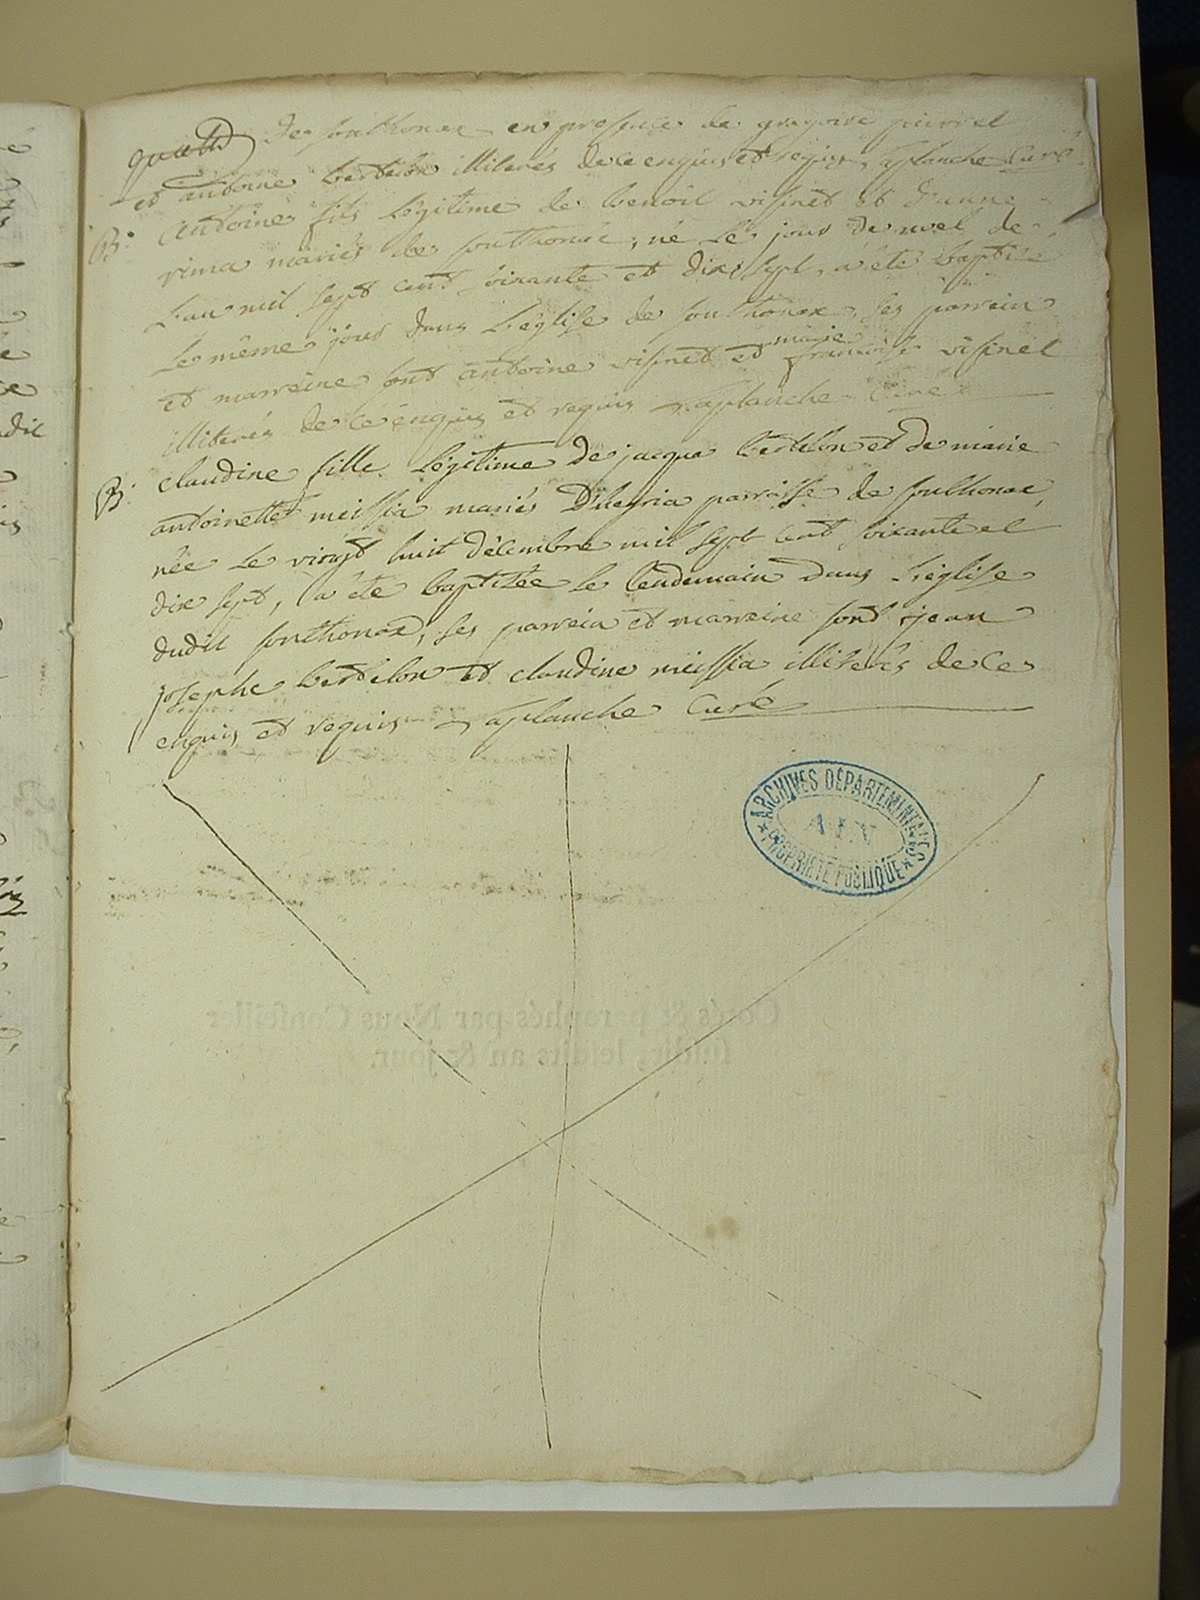 de sonthonax en presence de gregoire pierrel
et antoine bertelon illiterés de ce enquis et requis, aplanche Curé
B. antoine fils légitime de benoit visinet et d'anne
rima mariés de sonthonax, né le jour de noel de
l'an mil sept cent soixante et dix sept, a été baptisé
le même jour dans l'église de sonthonax, ses parrein
et marreine sont antoine visinet et marie francoise visinet
illiterés de ce enquis et requis aplanche Curé
B. claudine fille légitime de jacque bertelon et de marie
antoinette meissia mariés parroisse de sonthonax,
née le vingt huit décembre mil sept cent soixante et
dix sept, a été baptisée le lendemain dans l'église
dudit sonthonax, ses parrein et marreine sont jean
josephe bertelon et claudine meissia illiterés de ce
enquis et requis aplanche Curé
ARCHIVES DÉPARTEMENTALES
AIN
PROPRIÉTÉ PUBLIQUE
Cotés & paraphés par Nous Conseiller
susdit, lesdits an & jour.